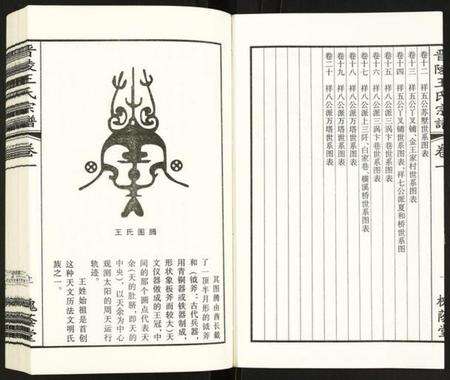 晋陵王氏宗譜
卷一
槐蔭堂
卷十二　祥五公苏墅世系图表
卷十三　祥五公丫叉铺、金王家村世系图表
卷十四　祥五公丫叉铺世系图表，祥七公派夏和桥世系图
卷十五　祥八公派三涡卞巷世系图表
卷十六　祥八公派三涡卞巷世系图表
卷十七　祥八公派上三阡、白家巷、横溪桥世系图表
卷十八　祥八公派万塔世系图表
卷十九　祥八公派万塔世系图表
卷二十　祥八公派万塔世系图表
王氏图腾
其图腾由酋长戴
了一顶半月形的钺斧
和（钺斧：古代兵器，
用青铜器或铁器制成，
形状象板斧而较大）天
文仪器做成的王冠，中
间的那个圆点代表天
余（天的肚脐，即天的
中央），以天余为中心
观测太阳的周天运行
轨迹。
王姓始祖是首创
这种天文历法文明氏
族之一。
晋陵王氏宗譜
卷一
槐蔭堂